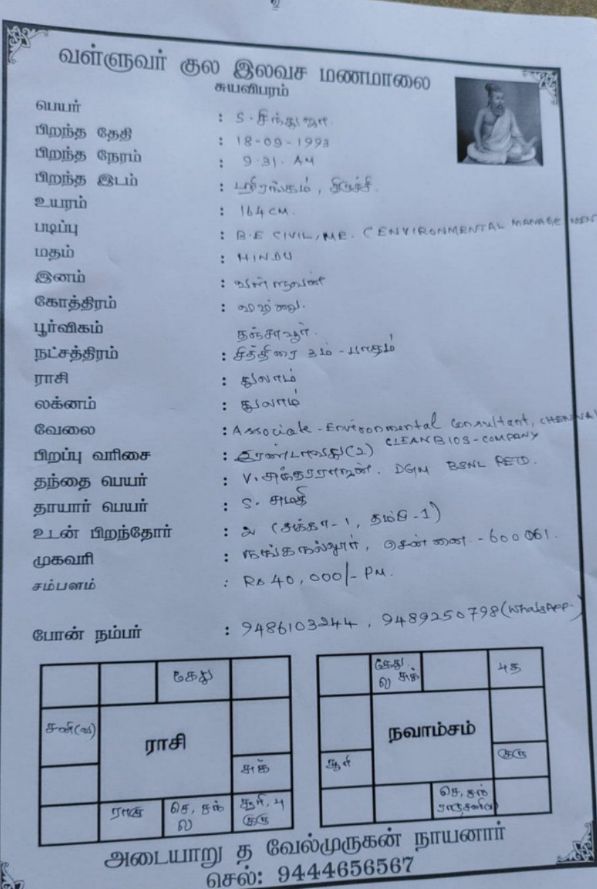 வள்ளுவர் குல இலவச மணமாலை
சுயவிபரம்
பெயர் : S. சிந்துஜா.
பிறந்த தேதி : 18-09-1993
பிறந்த நேரம் : 9.31. AM
பிறந்த இடம் : ஸ்ரீரங்கம், திருச்சி.
உயரம் : 164 CM.
படிப்பு : B.E CIVIL, ME. (ENVIRONMENTAL MANAGEMENT
மதம் : HINDU
இனம் : வள்ளுவன்
கோத்திரம் :
பூர்விகம் தஞ்சாவூர்.
நட்சத்திரம் : சித்திரை 3ம் - பாதம்
ராசி : துலாம்
லக்னம் : துலாம்
வேலை : Associate - Environmental Consultant, CHENNAI
CLEAN BIOS - COMPANY
பிறப்பு வரிசை : இரண்டாவது (2)
தந்தை பெயர் : V. சுந்தரராஜன். DGM BSNL RETD.
தாயார் பெயர் : S. சுமதி
உடன் பிறந்தோர் : 2 (அக்கா-1, தம்பி-1)
முகவரி : நங்கநல்லூர், சென்னை - 600 061.
சம்பளம் : Rs 40,000/- PM.
போன் நம்பர் : 9486103244, 9489250798 (WhatsApp.)
கேது
சனி(வ)
ராசி
சுக்
ராகு
செ, சந்
ல
சூரி, பு
குரு
கேது
ல சுக்
புத
நவாம்சம்
சூரி
குரு
செ, சந்
ராகு சனி(வ)
அடையாறு த வேல்முருகன் நாயனார்
செல்: 9444656567